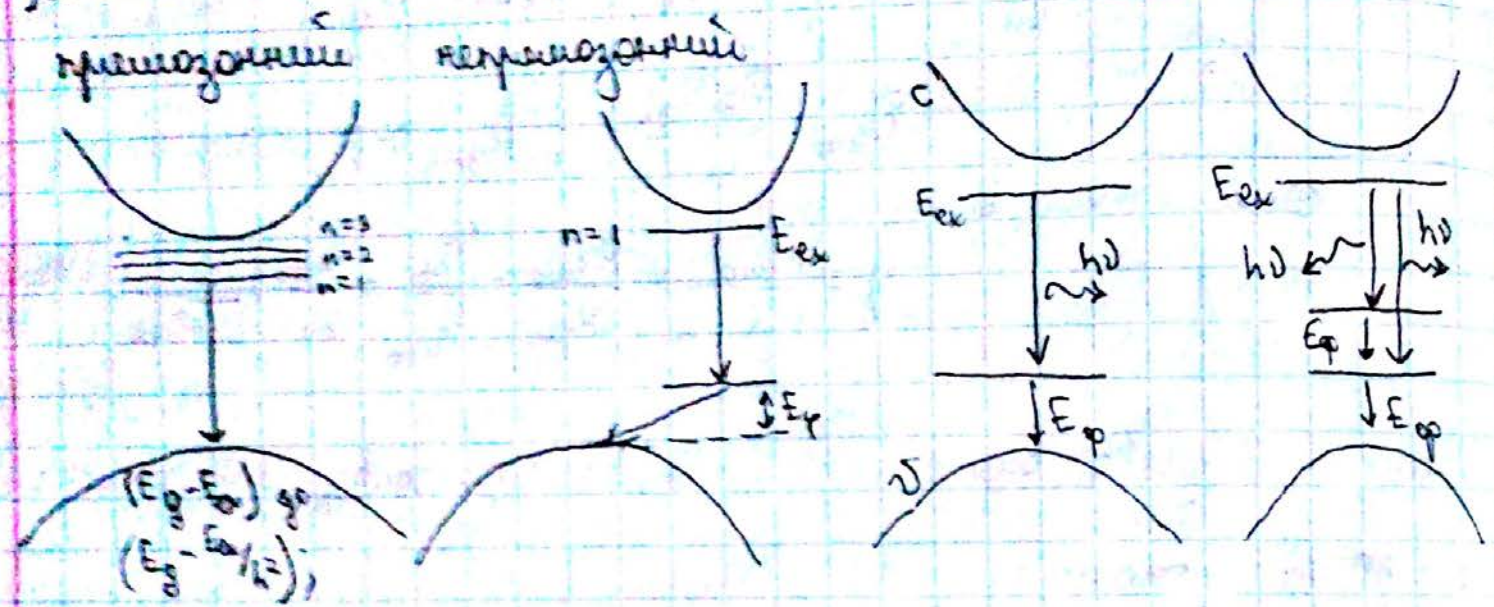 прямозонний непрямозонний
n=3
n=2
n=1
(E_g - E_ex) до
(E_g - E_ex/n²),
n=1 E_ex
E_φ
C
E_ex
hν
E_φ
v
E_ex
hν hν
E_φ
E_φ